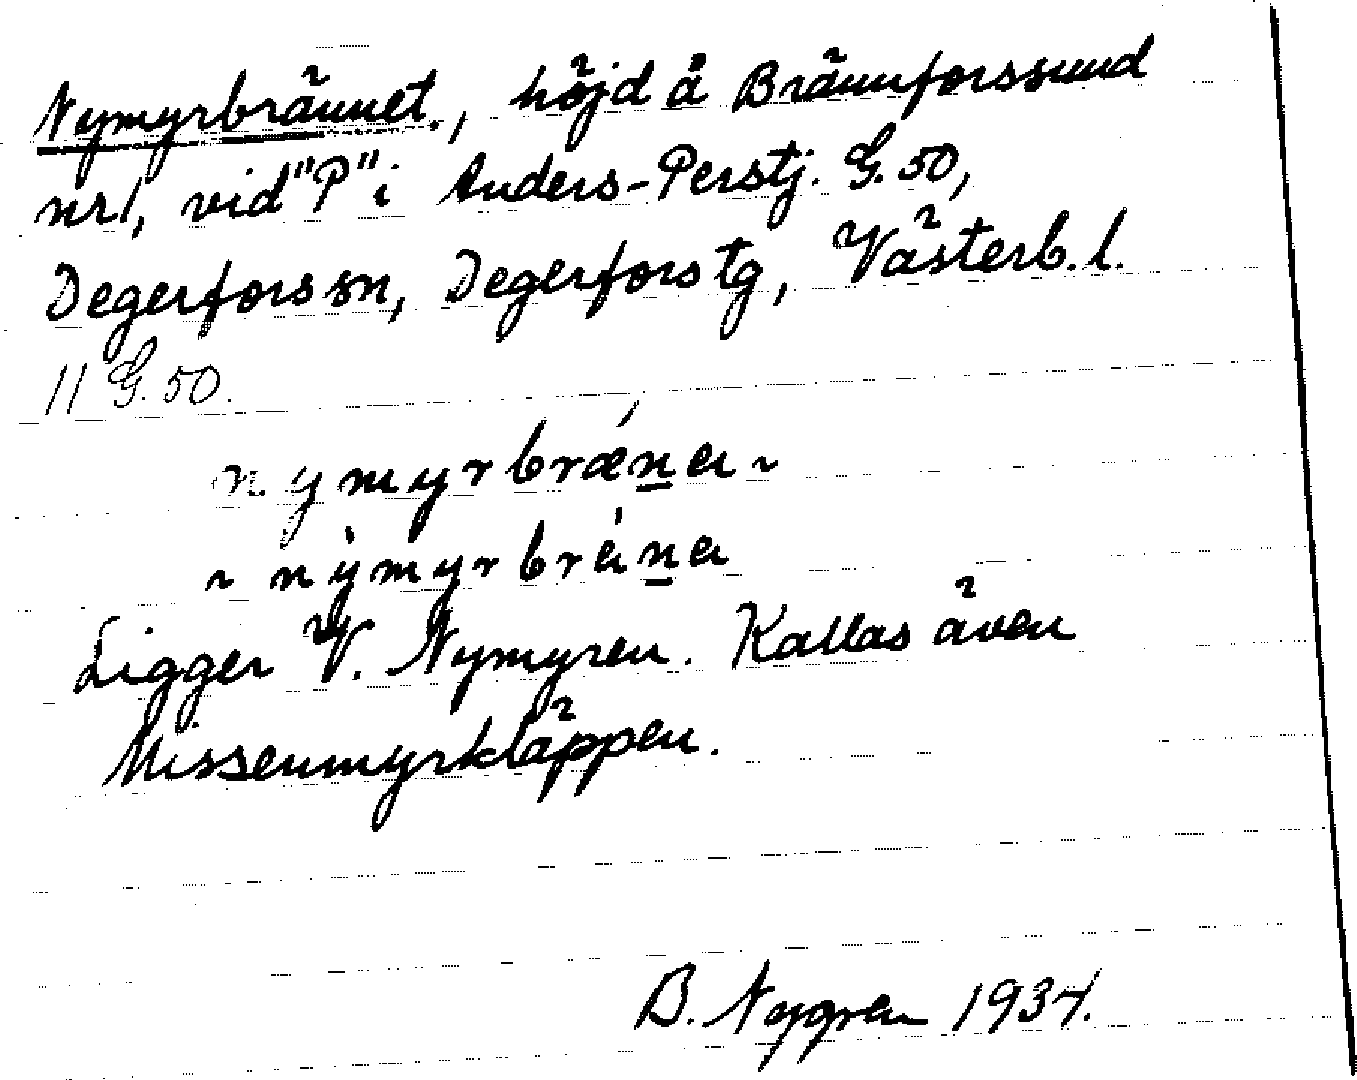 Nymyrbrännet., höjd å Brännforssund
nr 1, vid "P" i Anders-Perstj. G. 50,
Degerfors sn, Degerfors tg, Västerb. l.
11 G. 50.
nymyrbrǽn̲a ~
~ nỳmyrbrán̲a
Ligger V. Nymyren. Kallas även
Missenmyrkläppen.
B. Nygren 1934.